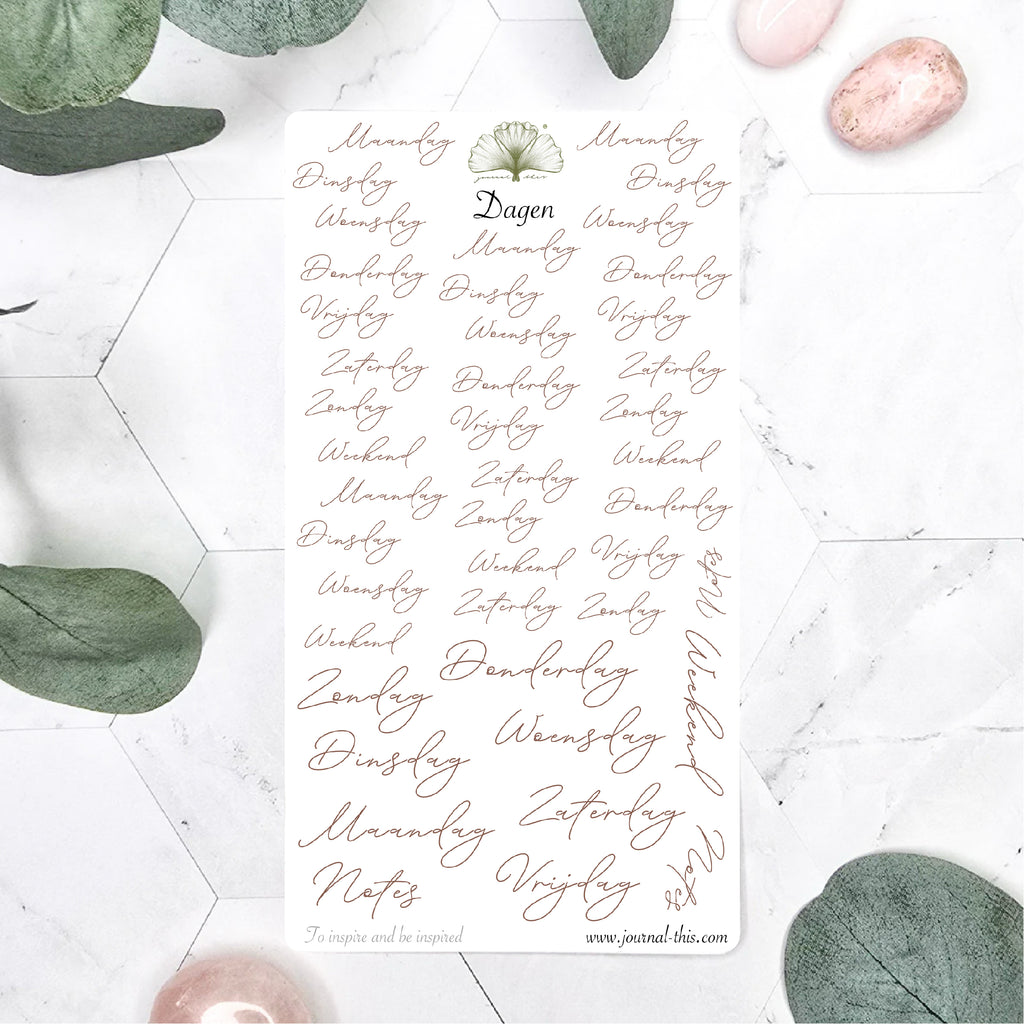 Maandag
Dinsdag
Woensdag
Donderdag
Vrijdag
Zaterdag
Zondag
Weekend
Maandag
Dinsdag
Woensdag
Weekend
Zondag
Dinsdag
Maandag
Notes
journal this
Dagen
Maandag
Dinsdag
Woensdag
Donderdag
Vrijdag
Zaterdag
Zondag
Weekend
Zaterdag
Donderdag
Woensdag
Zaterdag
Vrijdag
Maandag
Dinsdag
Woensdag
Donderdag
Vrijdag
Zaterdag
Zondag
Weekend
Donderdag
Vrijdag
Zondag
Notes
Weekend
Notes
To inspire and be inspired
www.journal-this.com